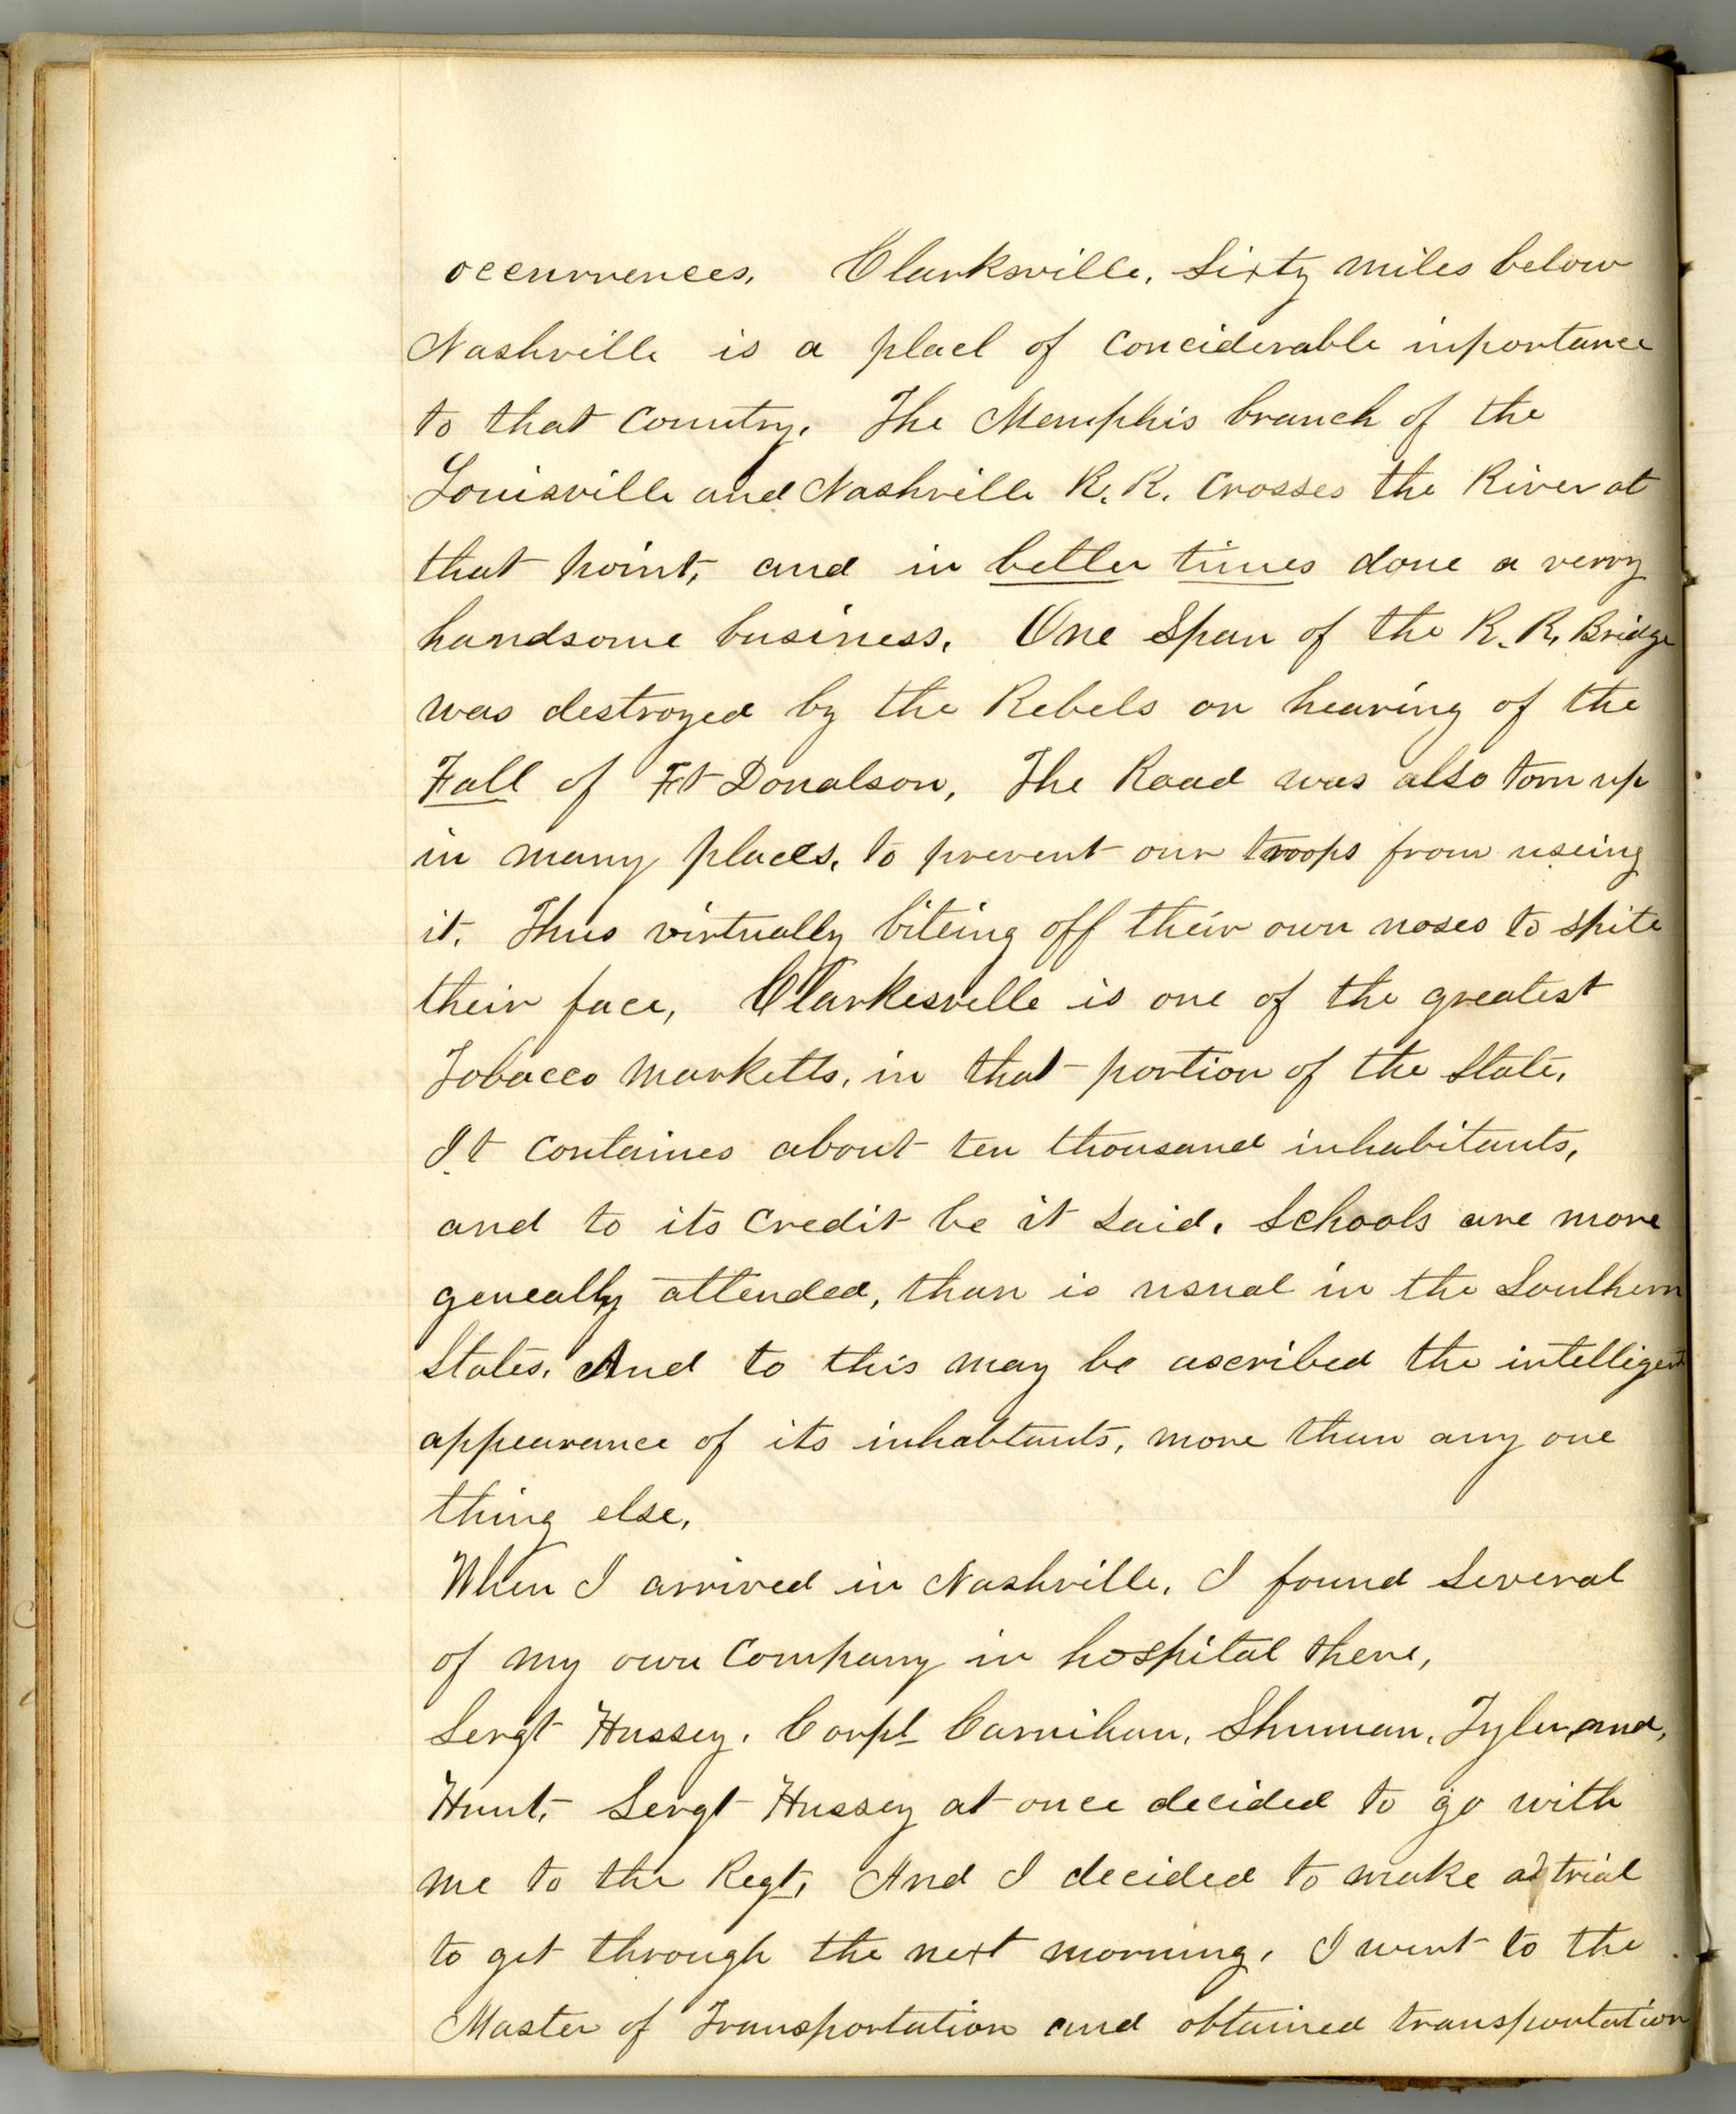 occurrences. Clarksville, Sixty miles below
Nashville is a place of conciderable inportance
to that Country. The Memphis branch of the
Louisville and Nashville R. R. Crosses the River at
that point, and in better times done a verry
handsome business. One Span of the R. R. Bridge
was destroyed by the Rebels on hearing of the
Fall of Ft Donalson, The Road was also torn up
in many places, to prevent our troops from useing
it. Thus virtually biteing off their own noses to spite
their face, Clarkesville is one of the greatest
Tobacco Marketts, in that portion of the State,
It Containes about ten thousand inhabitants,
and to its Credit be it Said. Schools are more
geneally attended, than is usual in the Southern
States. And to this may be ascribed the intelligent
appearance of its inhabtants, more than any one
thing else,
When I arrived in Nashville, I found Several
of my own Company in hospital there,
Sergt Hussey. Corpl Carnihan, Shuman, Tyler and,
Hunt, Sergt Hussey at once decided to go with
me to the Regt, And I decided to make a trial
to get through the next morning, I went to the
Master of Transportation and obtained transportation